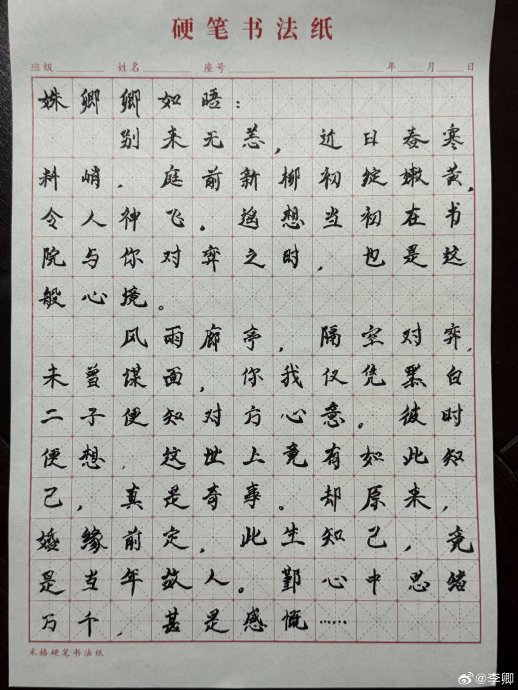 硬笔书法纸
班级 姓名 座号 年 月 日
姝卿卿如晤：
别来无恙，近日春寒
料峭，庭前新柳初绽嫩黄，
令人神飞。遥想当初在书
院与你对弈之时，也是这
般心境。
风雨廊亭，隔空对弈，
未曾谋面，你我仅凭黑白
二子便知对方心意。彼时
便想，这世上竟有如此知
己，真是奇事。却原来，
婚缘前定，此生知己，竟
是当年故人。鄞心中思绪
万千，甚是感慨……
米格硬笔书法纸
@李卿